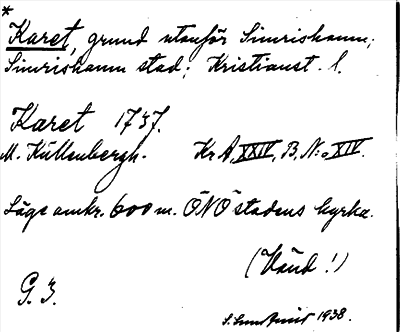 *
Karet, grund utanför Simrishamn;
Simrishamn stad; Kristianst. l.
Karet 1737.
M. Kullenbergh. Kr A, XXIV, B, N:o XIV.
Läge omkr. 600 m. ÖNÖ stadens kyrka.
(Vänd!)
G. 3.
1938.